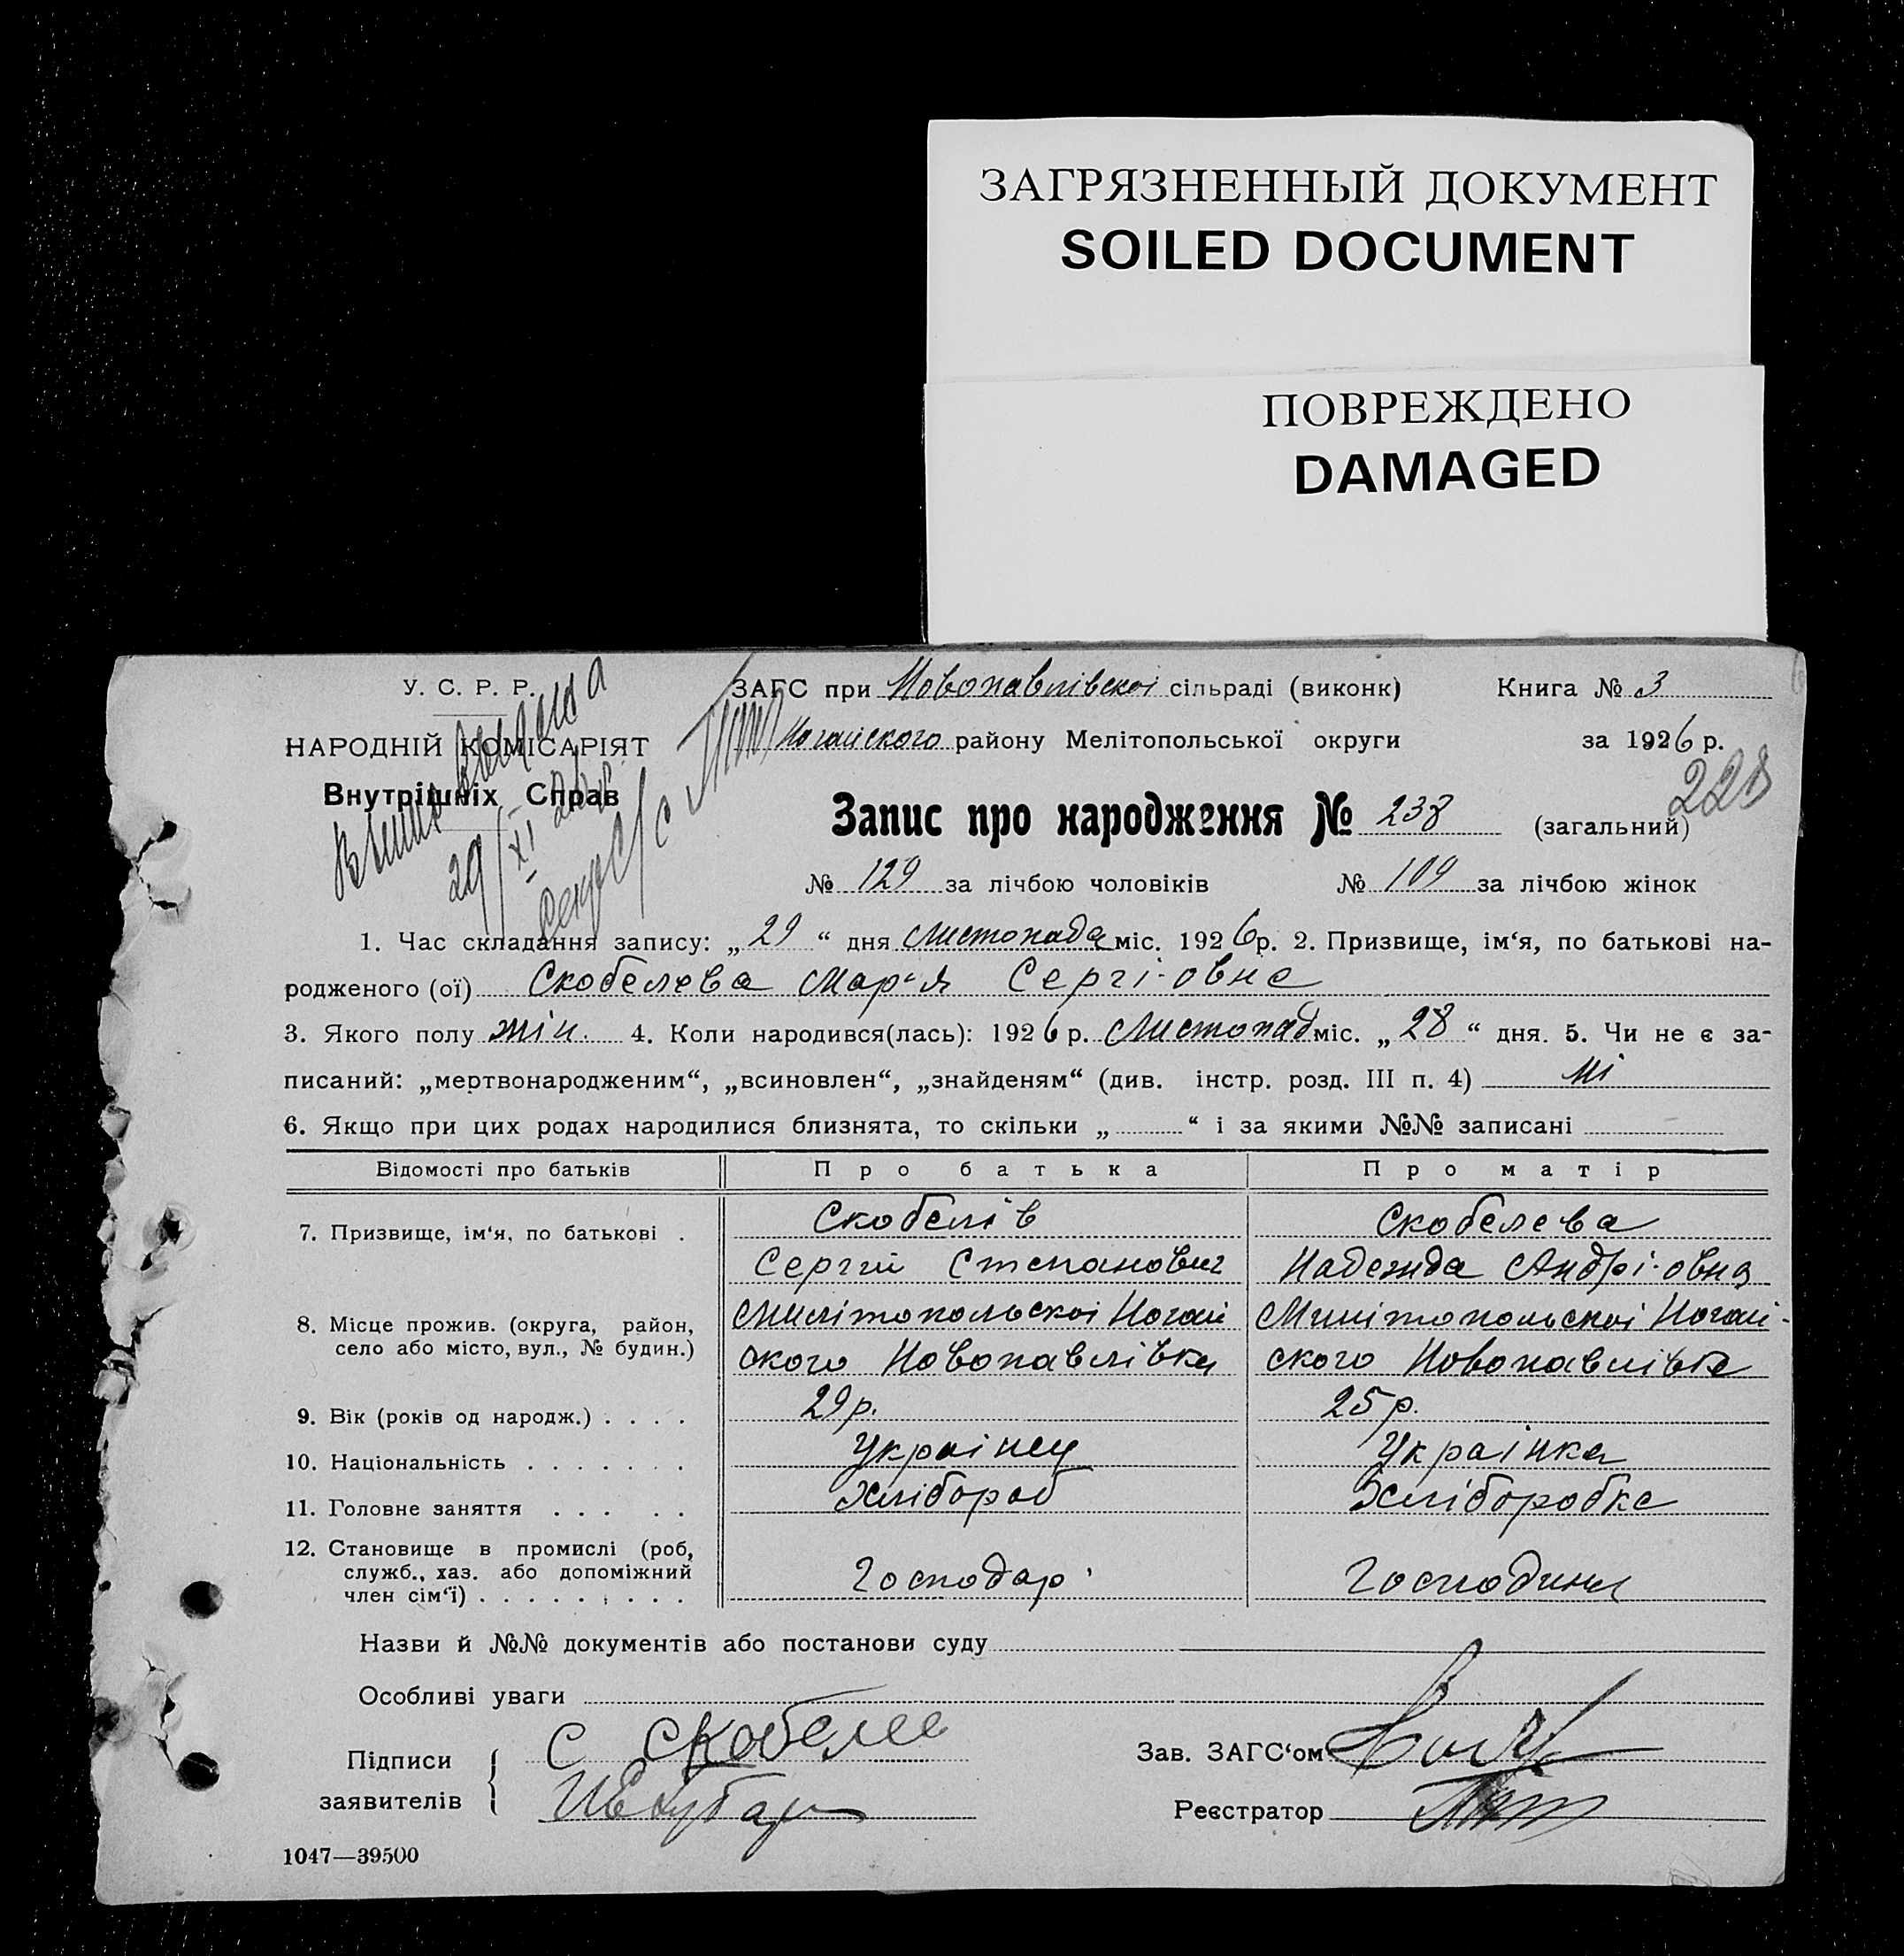 ЗАГРЯЗНЕННЫЙ ДОКУМЕНТ
SOILED DOCUMENT
ПОВРЕЖДЕНО
DAMAGED
У. С. Р. Р.
НАРОДНІЙ КОМІСАРІЯТ
Внутрішніх Справ
29/XI
ЗАГС при Новопавлівскоі сільраді (виконк) Книга № 3
Ногайского району Мелітопольської округи за 1926 р.
228
Запис про народження № 238 (загальний)
№ 129 за лічбою чоловіків № 109 за лічбою жінок
1. Час складання запису: „29“ дня Листопада міс. 1926 р. 2. Призвище, ім‘я, по батькові на-
родженого (ої) Скобелева Мар'я Сергі-овна
3. Якого полу жін. 4. Коли народився(лась): 1926 р. Листопад міс. „28“ дня. 5. Чи не є за-
писаний: „мертвонародженим“, „всиновлен“, „знайденям“ (див. інстр. розд. III п. 4) Ні
6. Якщо при цих родах народилися близнята, то скільки „ “ і за якими №№ записані
Відомості про батьків Про батька Про матір
7. Призвище, ім‘я, по батькові . Скобелів Скобелева
Сергій Степанович Надежда Андрі-овна
8. Місце прожив. (округа, район, Милітопольскоі Ногай Милітопольскоі Ногай-
село або місто, вул., № будин.) ского Новопавлівка ского Новопавлівка
9. Вік (років од народж.) . . . . 29 р. 25 р.
10. Національність . . . . . . . Украінец Украінка
11. Головне заняття . . . . . Хлібороб Хлібороbка
12. Становище в промислі (роб,
служб., хаз. або допоміжний Господар Господиня
член сім‘ї) . . . . . . . . .
Назви й №№ документів або постанови суду
Особливі уваги
Підписи С Скобелев Зав. ЗАГС‘ом
заявителів Реєстратор
1047—39500